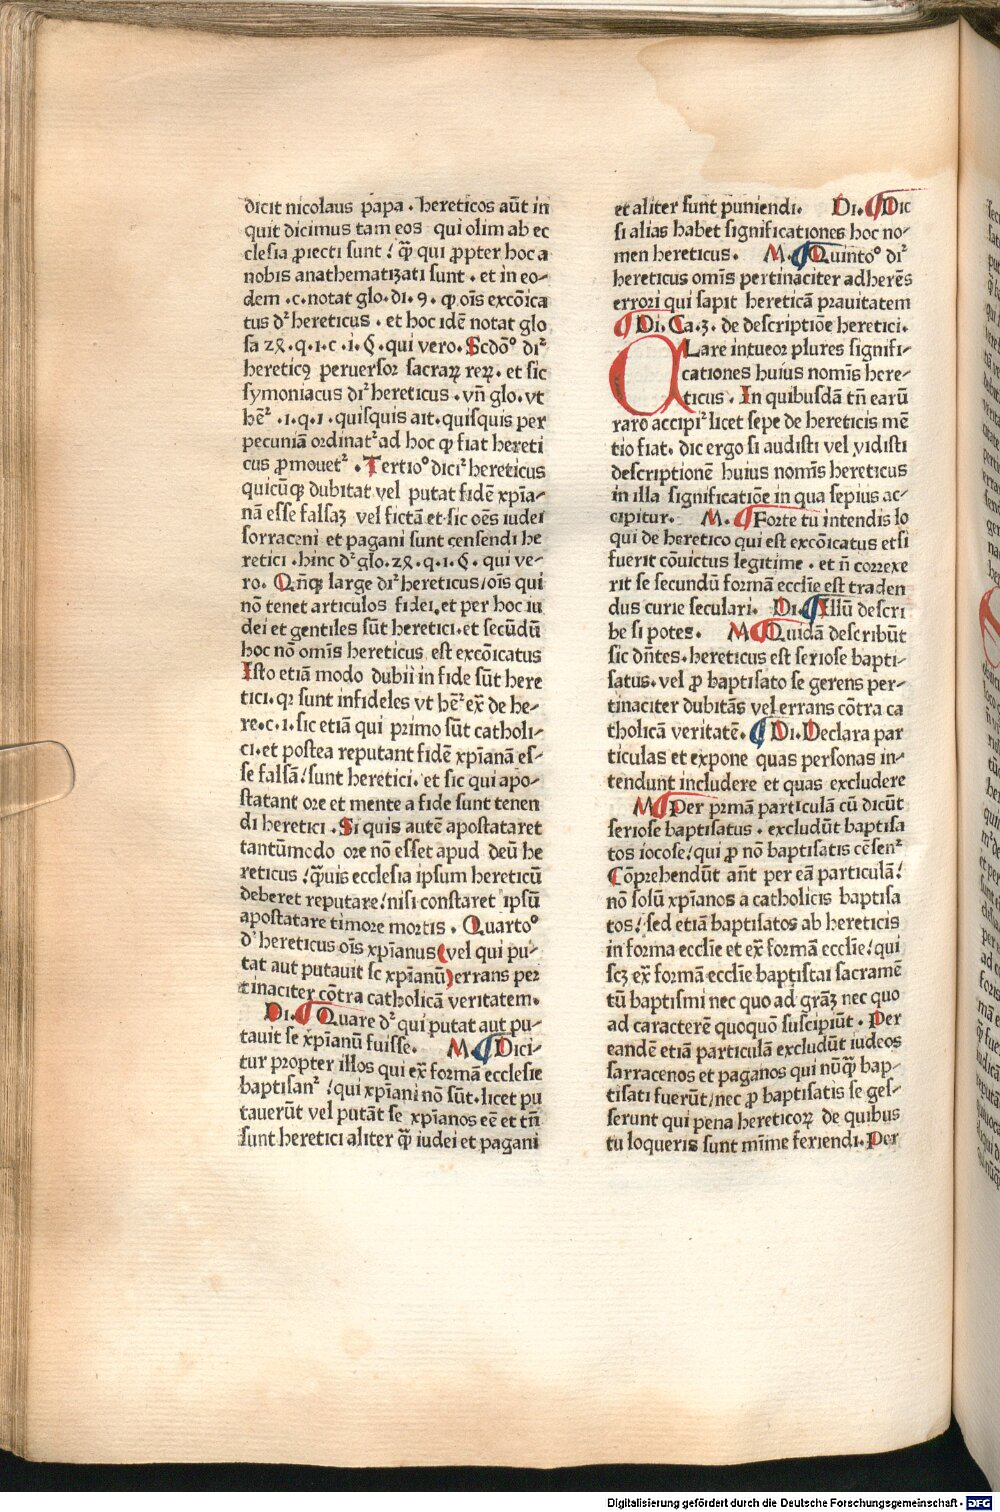 dicit nicolaus papa . hereticos aūt in
quit dicimus tam eos qui olim ab ec
clesia ꝓiecti sunt / qͣ̄ qui ꝓpter hoc a
nobis anathematizati sunt . et in eo-
dem .c. notat glo. di. 9. ꝙ oīs excōica
tus dꝰ hereticus . et hoc idē notat glo
sa 24. q. 1. c. 1. §. qui vero. Scdō° diꝰ
hereticꝰ peruersor sacraꝝ reꝝ . et sic
symoniacus diꝰ hereticus . vn̄ glo. vt
hēꝰ .1. q. 1. quisquis ait. quisquis per
pecuniā ordinatꝰ ad hoc ꝙ fiat hereti
cus ꝓmouetꝰ . Tertio° diciꝰ hereticus
quicūqꝫ dubitat vel putat fidē xp̄ia-
nā esse falsaꝫ vel fictā et sic oēs iudei
sorraceni et pagani sunt censendi he
retici . hinc dꝰ glo. 24. q. 1. §. qui ve-
ro. Qn̄qꝫ large diꝰ hereticus / oīs qui
nō tenet articulos fidei, et per hoc iu
dei et gentiles sūt heretici. et secūdū
hoc nō omīs hereticus est excōicatus
Isto etiā modo dubii in fide sūt here
tici. qꝛ sunt infideles vt hēꝰ ex̄ de he-
re. c. 1. sic etiā qui primo sūt catholi-
ci. et postea reputant fidē xp̄ianā es-
se falsā / sunt heretici. et sic qui apo-
statant ore et mente a fide sunt tenen
di heretici . Si quis autē apostataret
tantūmodo ore nō esset apud deū he
reticus / qͣ̄uis ecclesia ipsum hereticū
deberet reputare / nisi constaret ipsū
apostatare timore mortis . Quarto°
dꝰ hereticus oīs xp̄ianus (vel qui pu-
tat aut putauit se xp̄ianū) errans per
tinaciter cōtra catholicā veritatem.
Di. ¶ Quare dꝰ qui putat aut pu-
tauit se xp̄ianū fuisse. M. ¶ Dici-
tur propter illos qui ex̄ formā ecclesie
baptisanꝰ / qui xp̄iani nō sūt. licet pu
tauerūt vel putāt se xp̄ianos eē et tn̄
sunt heretici aliter qͣ̄ iudei et pagani
et aliter sunt puniendi. Di. ¶ Dic
si alias habet significationes hoc no-
men hereticus . M. ¶ Quinto° diꝰ
hereticus omīs pertinaciter adherēs
errori qui sapit hereticā prauitatem
¶ Di. Ca. 3. de descriptiōe heretici.
CLare intueor plures signifi-
cationes huius nomīs here-
ticus . In quibusdā tn̄ earū
raro accipiꝰ licet sepe de hereticis mē
tio fiat. dic ergo si audisti vel vidisti
descriptionē huius nomīs hereticus
in illa significatiōe in qua sepius ac-
cipitur. M. ¶ Forte tu intendis lo
qui de heretico qui est excōicatus etsi
fuerit cōuictus legitime . et n̄ correxe
rit se secundū formā ecclīe est traden
dus curie seculari. Di. ¶ Illū descri
be si potes. M. ¶ Quidā describūt
sic dn̄tes. hereticus est seriose bapti-
satus. vel ꝓ baptisato se gerens per-
tinaciter dubitās vel errans cōtra ca
tholicā veritatē. ¶ Di. Declara par
ticulas et expone quas personas in-
tendunt includere et quas excludere
M. ¶ Per primā particulā cū dicūt
seriose baptisatus . excludūt baptisa
tos iocose / qui ꝓ nō baptisatis cēsenꝰ
Cōprehendūt ant̄ per eā particulā /
nō solū xp̄ianos a catholicis baptisa
tos / sed etiā baptisatos ab hereticis
in forma ecclīe et ex̄ formā ecclīe / qui
scꝫ ex̄ formā ecclīe baptiscai sacramē
tū baptismi nec quo ad grāꝫ nec quo
ad caracterē quoquō suscipiūt . Per
eandē etiā particulā excludūt iudeos
sarracenos et paganos qui nūqͣ̄ bap-
tisati fuerūt / nec ꝓ baptisatis se ges-
serunt qui pena hereticoꝝ de quibus
tu loqueris sunt mīme feriendi. Per
Digitalisierung gefördert durch die Deutsche Forschungsgemeinschaft - DFG